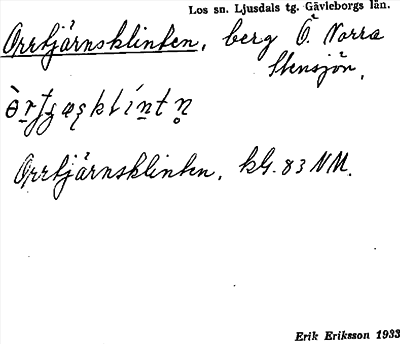 Los sn. Ljusdals tg. Gävleborgs län.
Orrtjärnsklinten, berg Ö. Norra
Stensjön,
Orrtjärnsklinten, kbl. 83 NM.
Erik Eriksson 1933